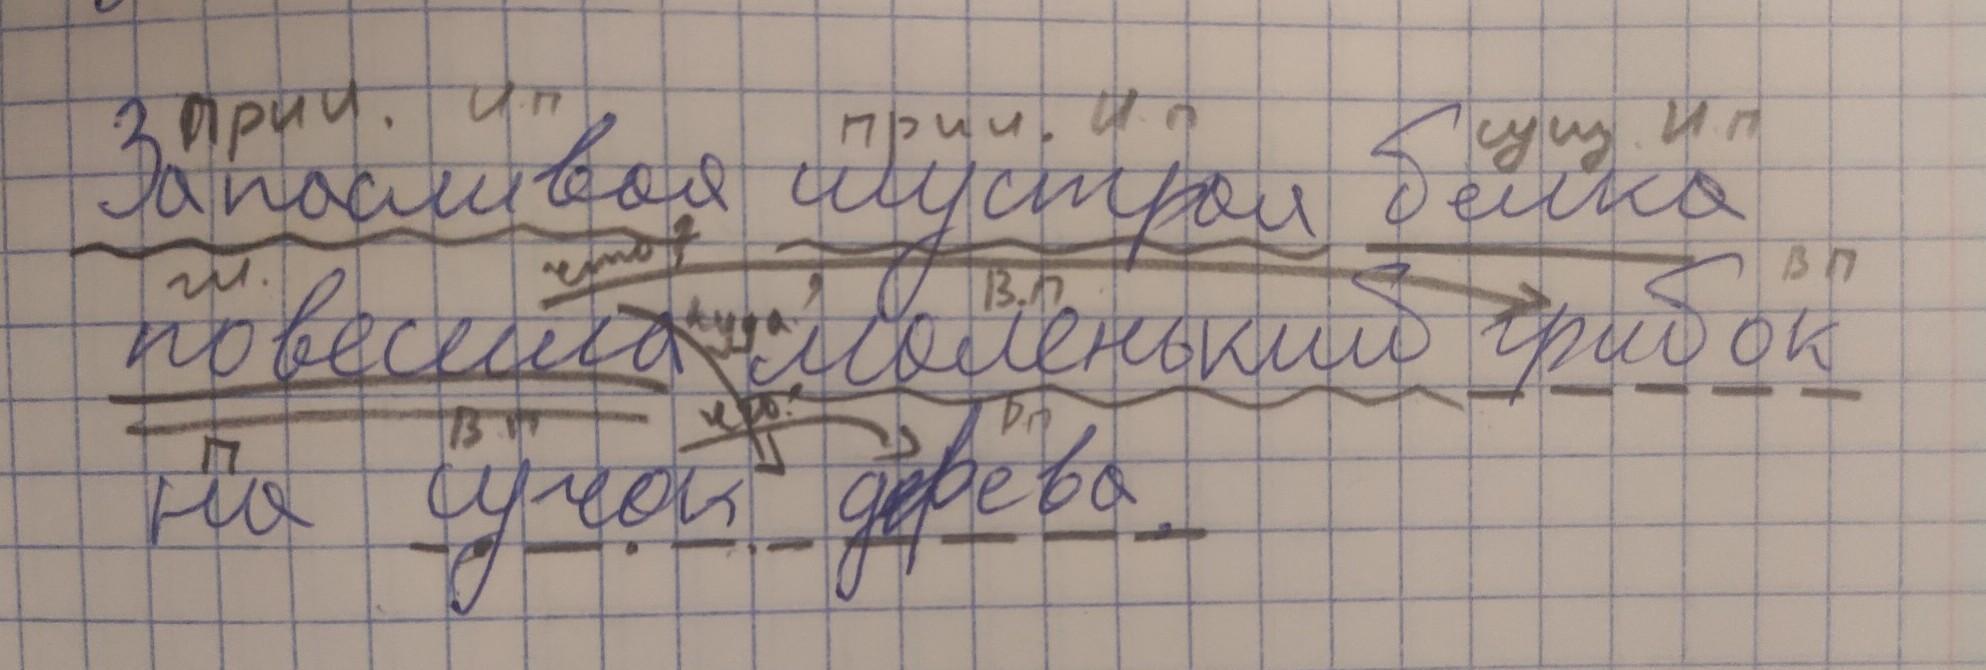 прил. И.п прил. И.п сущ. И.п
Запасливая шустрая белка
гл. что? В.П ВП
куда?
повесила маленький грибок
П В.П чего? Рп
на сучок дерева.